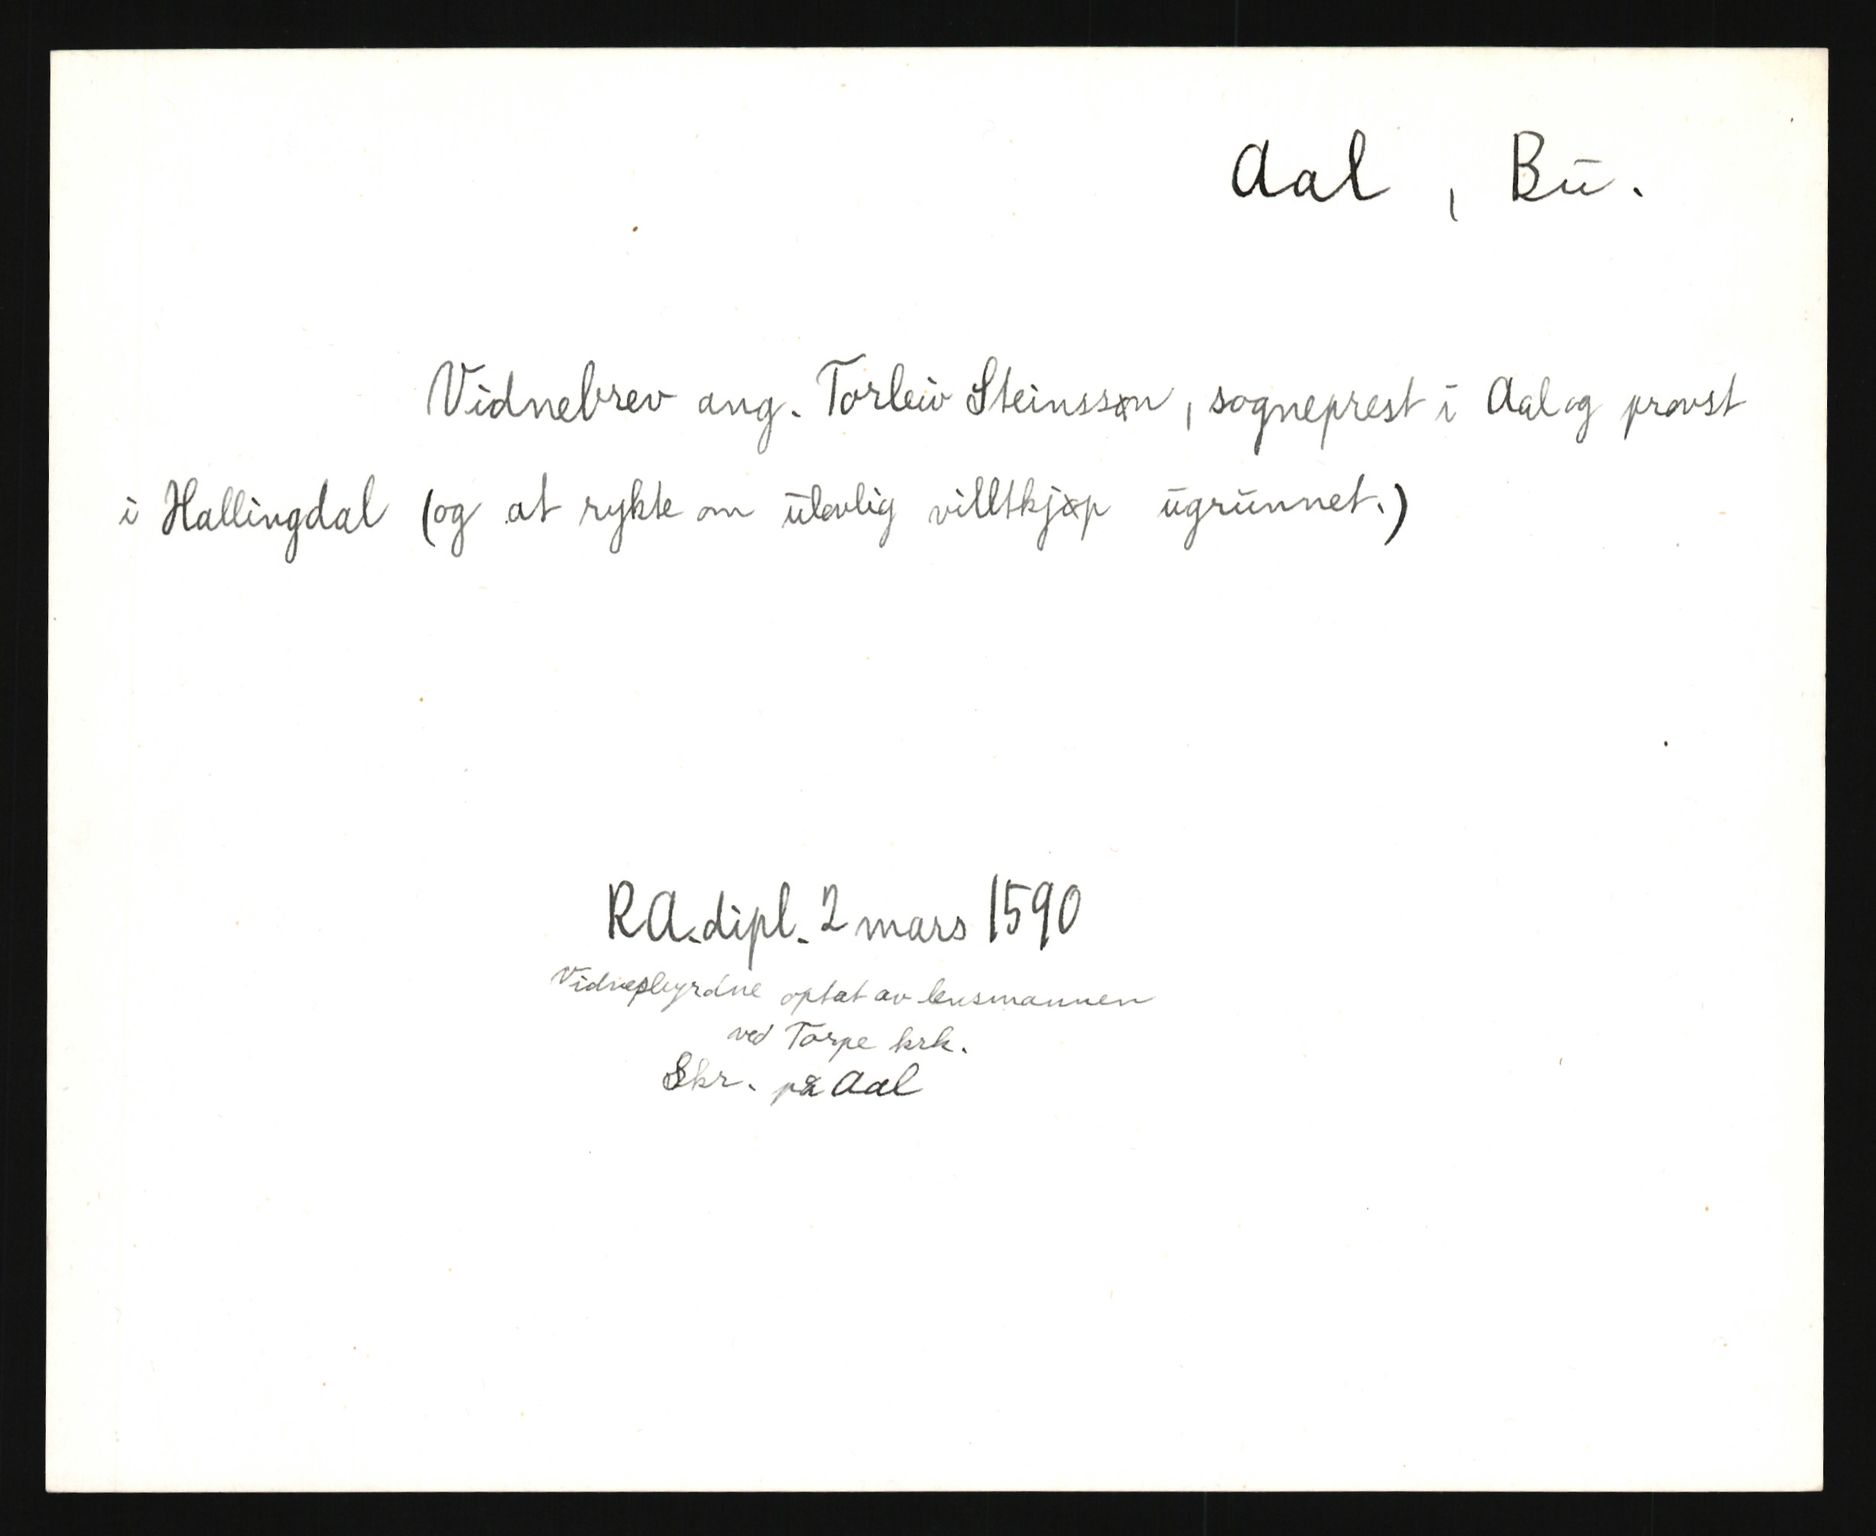 Aal, Bu.
Vidnebrev ang. Torleiv Steinssøn, sogneprest i Aal og provst
i Hallingdal (og at rykte om ulovlig villtkjøp ugrunnet.)
RA. dipl. 2 mars 1590
optat av lensmannen
ved Torpe krk.
Skr. på Aal